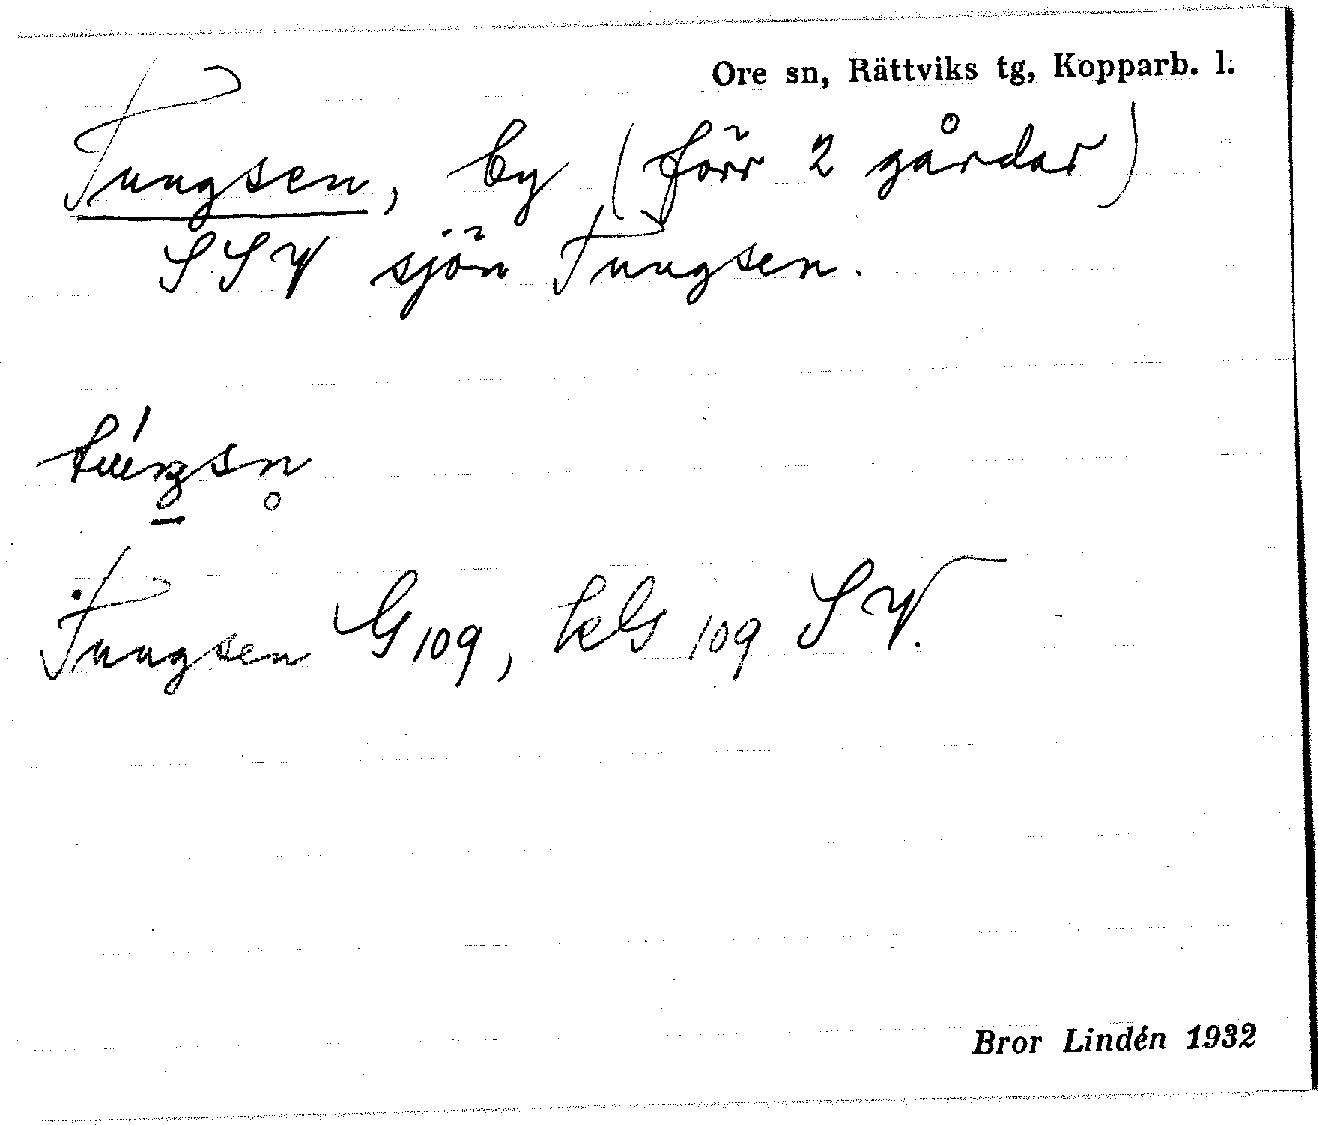 Ore sn, Rättviks tg, Kopparb. l.
Tungsen, by (förr 2 gårdar)
SSV sjön Tungsen.
tuŋ́sn̥
Tungsen G 109, kG 109 SV.
Bror Lindén 1932